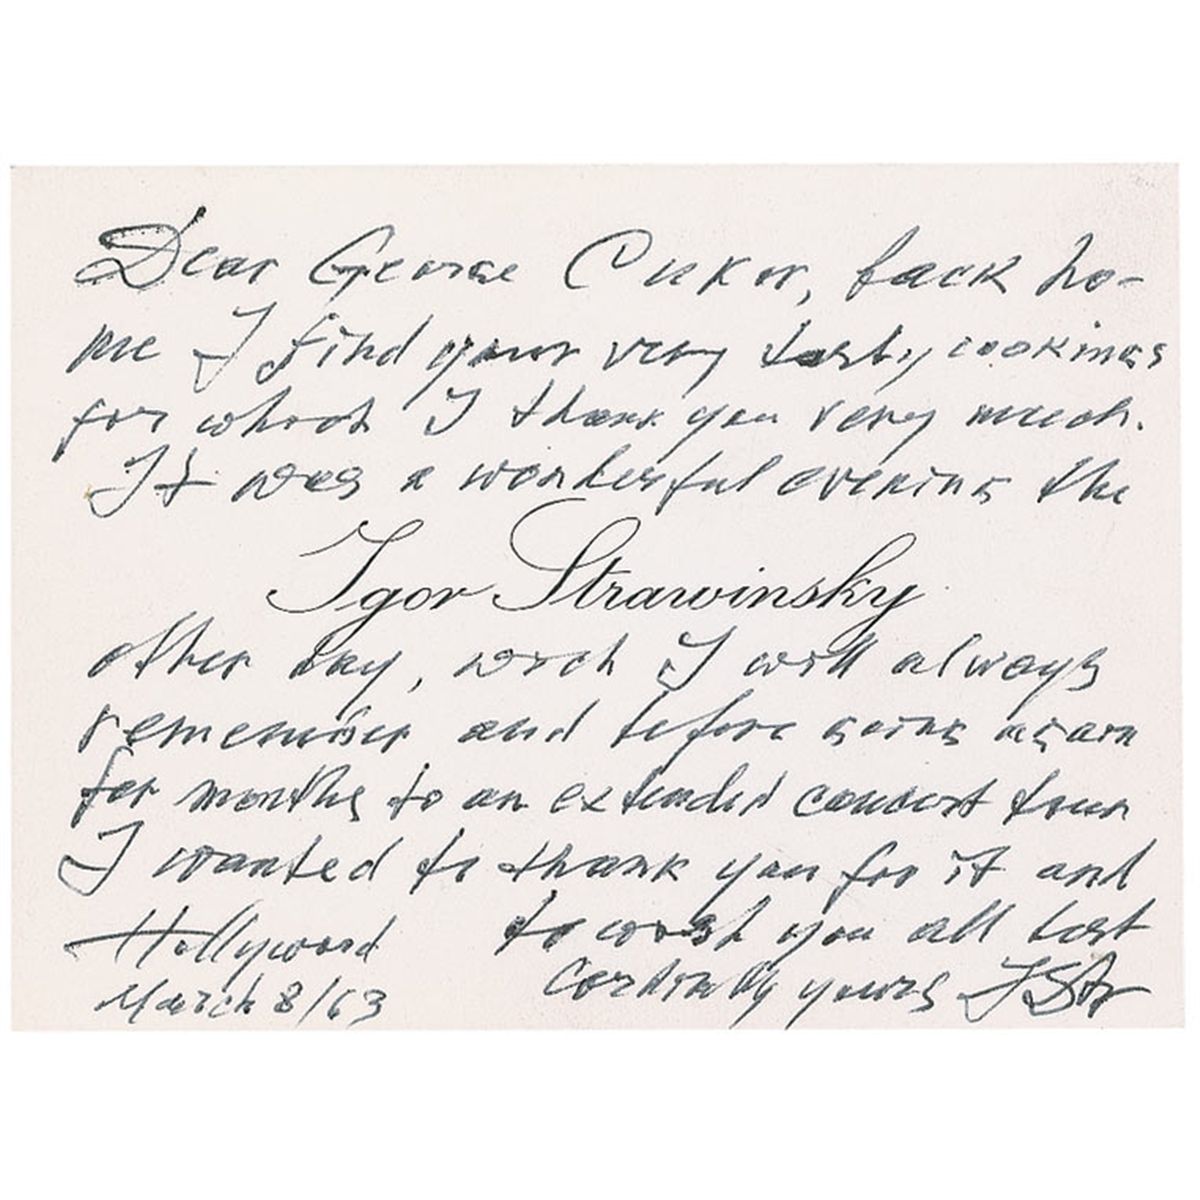 Dear George Cukor, back ho-
me I find your very tasty cookings
for which I thank you very much.
It was a wonderful evening the
Igor Strawinsky
other day, wich I will always
remember and before going again
for months to an extended concert tour
I wanted to thank you for it and
to wish you all best
Hollywood
March 8/63
Cordially yours IStr